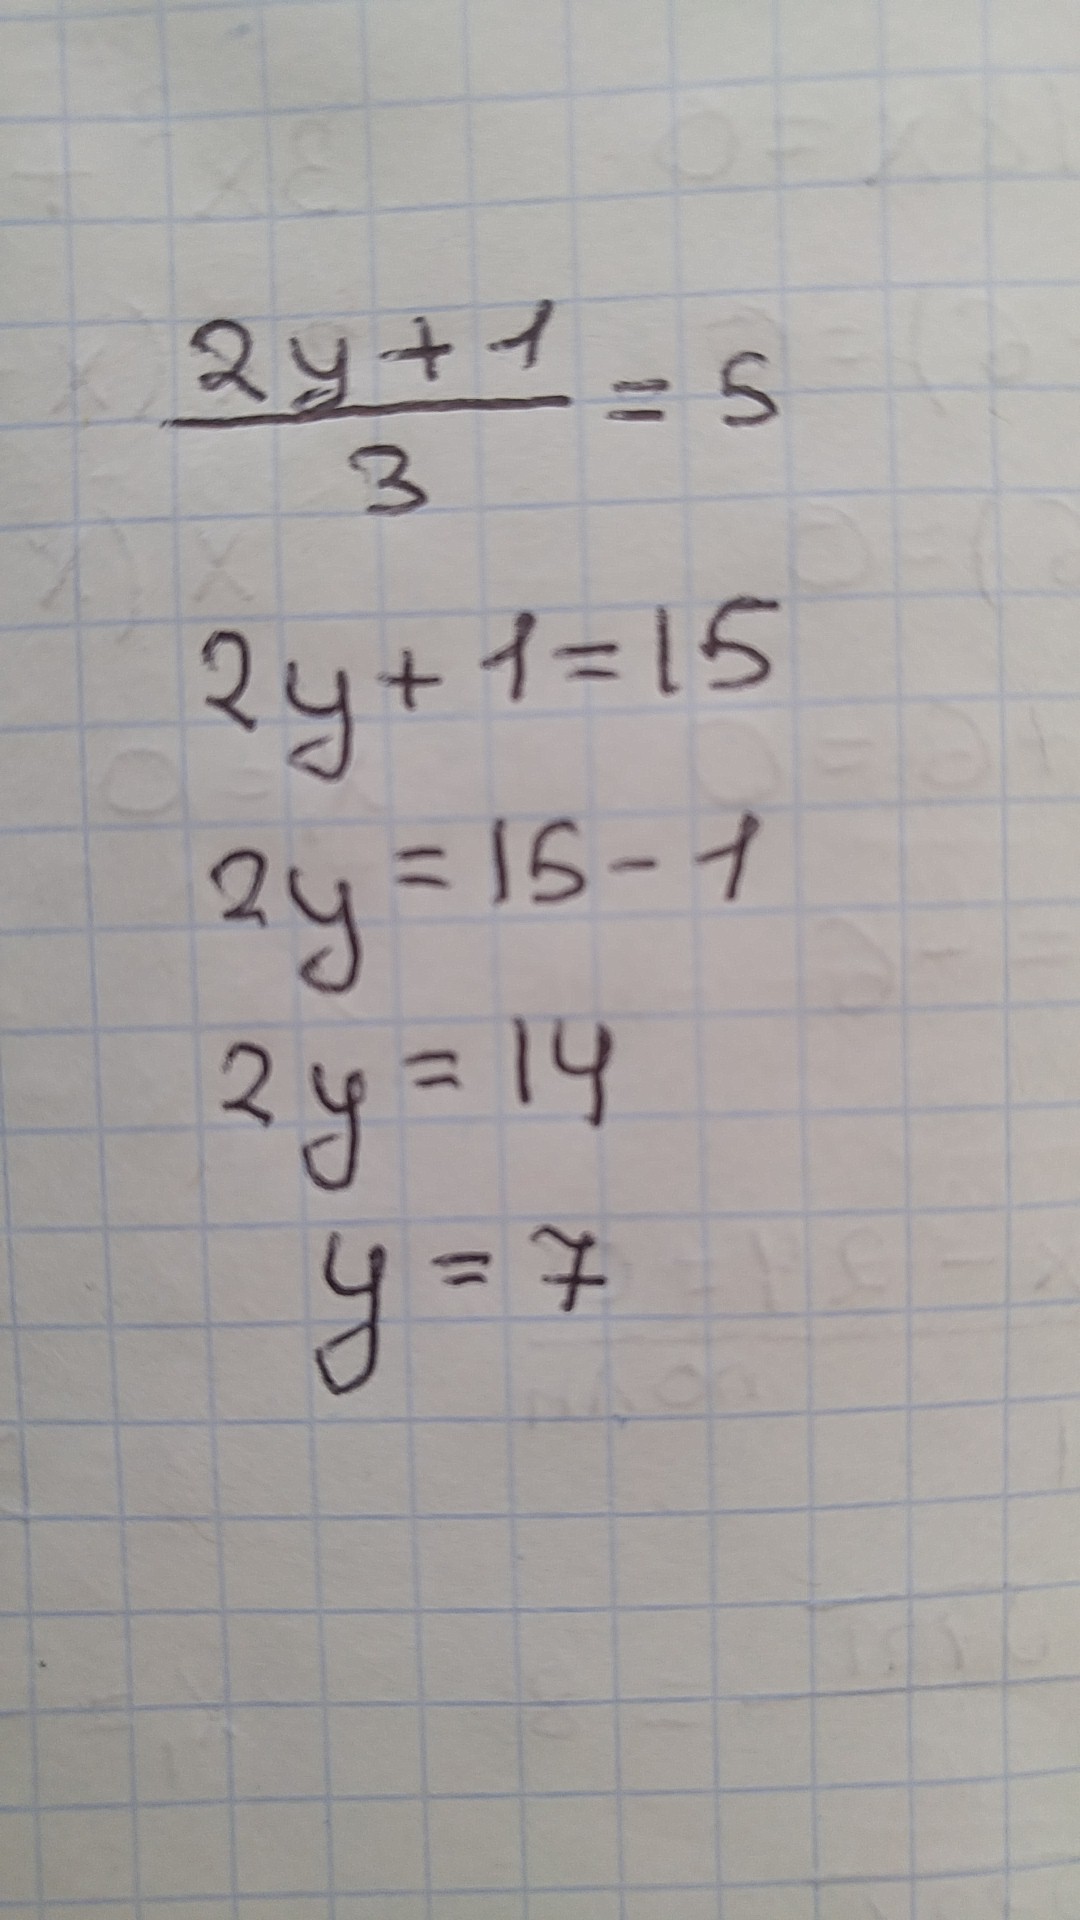 2y + 1
3 = 5
2y + 1 = 15
2y = 15 - 1
2y = 14
y = 7